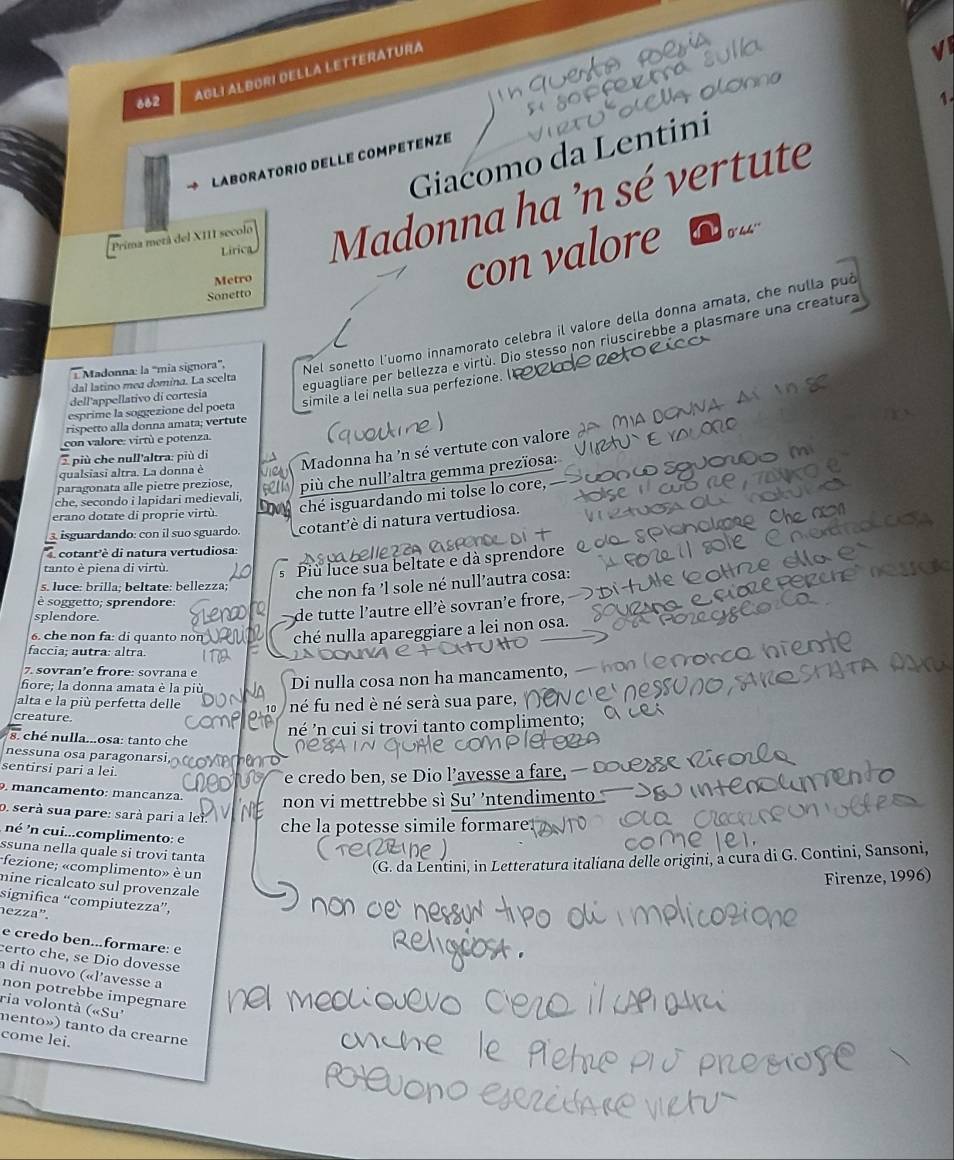 662 AGLI ALBORI DELLA LETTERATURA
in questo poesia
si sofferma sulla
virtù della donna
→ LABORATORIO DELLE COMPETENZE
Giacomo da Lentini
Madonna ha 'n sé vertute
con valore 0'44''
Prima metà del XIII secolo
Lirica
Metro
Sonetto
Nel sonetto l'uomo innamorato celebra il valore della donna amata, che nulla può
eguagliare per bellezza e virtù. Dio stesso non riuscirebbe a plasmare una creatura
simile a lei nella sua perfezione. iperbole retorica
1. Madonna: la "mia signora",
dal latino mea domina. La scelta
dell'appellativo di cortesia
esprime la soggezione del poeta
rispetto alla donna amata; vertute
con valore: virtù e potenza.
2. più che null'altra: più di
qualsiasi altra. La donna è
paragonata alle pietre preziose,
che, secondo i lapidari medievali,
erano dotate di proprie virtù.
3. isguardando: con il suo sguardo.
4. cotant'è di natura vertudiosa:
tanto è piena di virtù.
5. luce: brilla; beltate: bellezza;
è soggetto; sprendore:
splendore.
6. che non fa: di quanto non
faccia; autra: altra.
7. sovran'e frore: sovrana e
fiore; la donna amata è la più
alta e la più perfetta delle
creature.
8. ché nulla...osa: tanto che
nessuna osa paragonarsi,
sentirsi pari a lei.
9. mancamento: mancanza.
0. serà sua pare: sarà pari a lei.
né 'n cui...complimento: e
ssuna nella quale si trovi tanta
fezione; «complimento» è un
mine ricalcato sul provenzale
significa "compiutezza",
nezza".
e credo ben...formare: e
certo che, se Dio dovesse
a di nuovo («l'avesse a
non potrebbe impegnare
ria volontà («Su'
mento») tanto da crearne
come lei.
(quartine)
Madonna ha 'n sé vertute con valore LA MIA DONNA HA IN SÉ
VIRTU' E VALORE
più che null'altra gemma prezïosa:
ché isguardando mi tolse lo core, suo sguardo mi
tolse il cuore, tanto è
cotant'è di natura vertudiosa. virtuosa di natura
5 Più luce sua beltate e dà sprendore e da splendore che non
che non fa 'l sole né null'autra cosa:
de tutte l'autre ell'è sovran'e frore, Di tutte le altre ella è
sovrana e fiore perche nessuna
ché nulla apareggiare a lei non osa.
Di nulla cosa non ha mancamento, non le manca niente
10 né fu ned è né serà sua pare, non c'è nessuno
né 'n cui si trovi tanto complimento; a lei
nessa in quale completezza
e credo ben, se Dio l'avesse a fare, dovesse rifarla
non vi mettrebbe sì Su' 'ntendimento su intendimento
che la potesse simile formare. tanto da creare un'altra
come lei.
(Terzine)
(G. da Lentini, in Letteratura italiana delle origini, a cura di G. Contini, Sansoni,
Firenze, 1996)
non ce' nessun tipo di implicazione
Religiosa.
nel medioevo c'era il lapidari
anche le pietre più preziose
potevono esercitare virtu